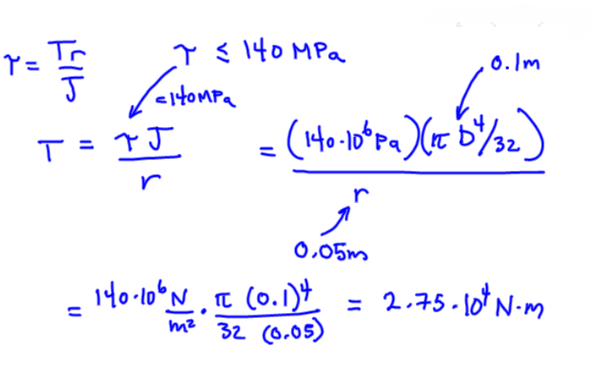 τ = Tr/J    τ ≤ 140 MPa
0.1m
=140MPa
T = τJ/r = (140·10⁶Pa)(π D⁴/32)/r
0.05m
= 140·10⁶ N/m² · π (0.1)⁴/32 (0.05) = 2.75·10⁴ N·m